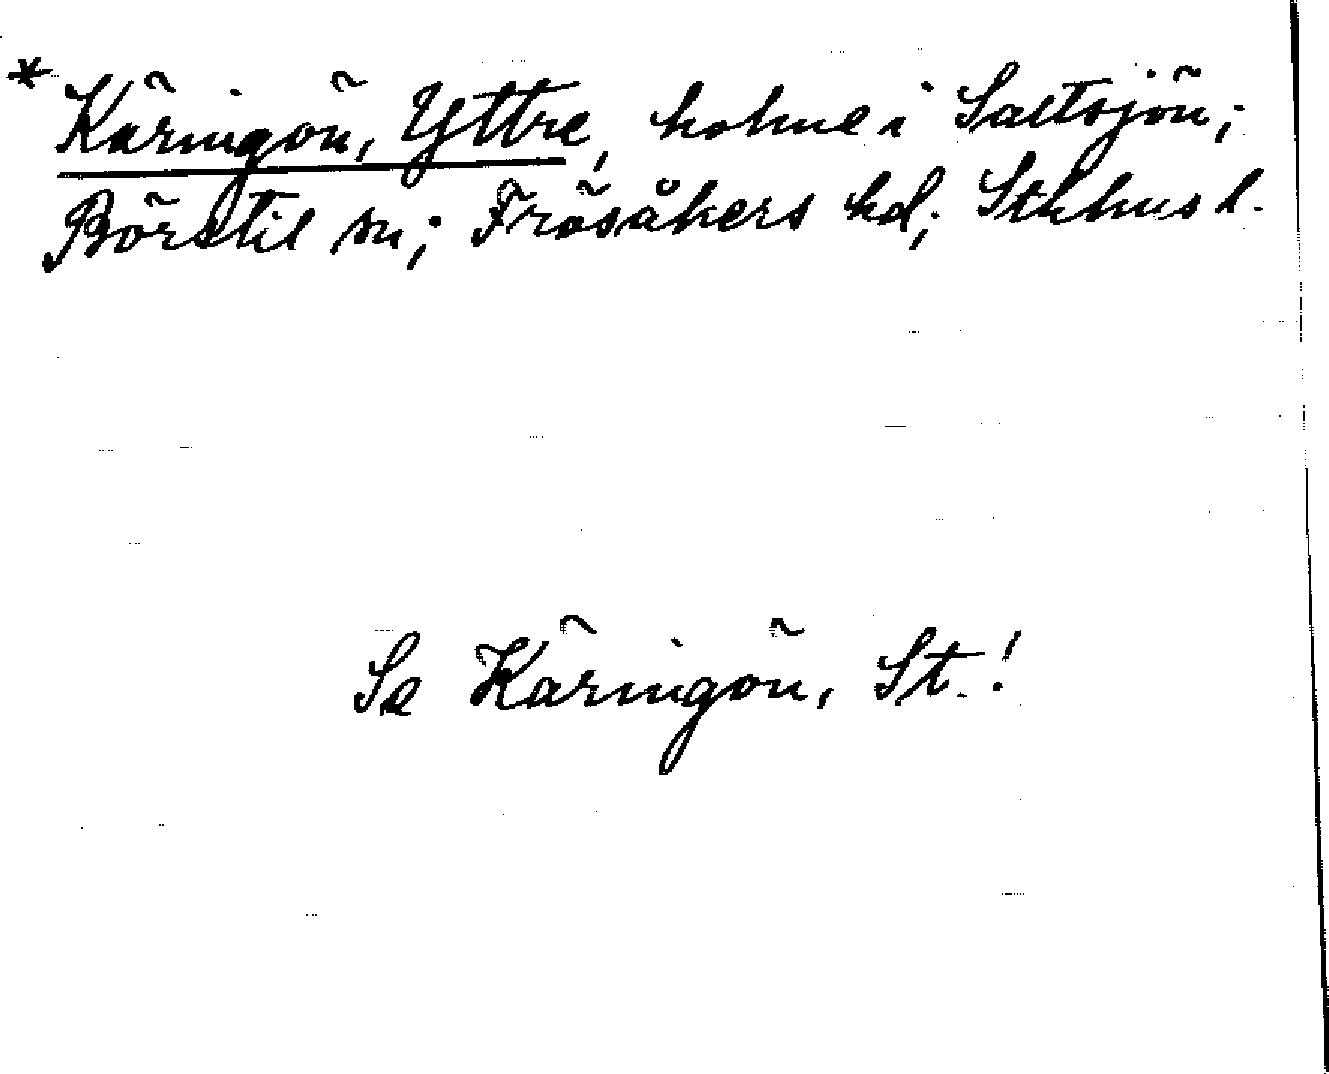 * Käringön, Yttre, holme i Saltsjön;
Börstil sn; Frösåkers hd; Sthlms l.
Se Käringön, St.!